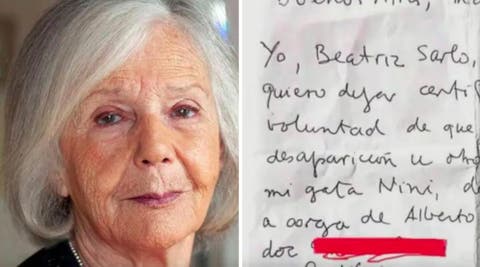 Yo, Beatriz Sarlo,
quiero dejar certi
voluntad de que
desaparición u otr
mi gata Nini, d
a cargo de Alberto
doc